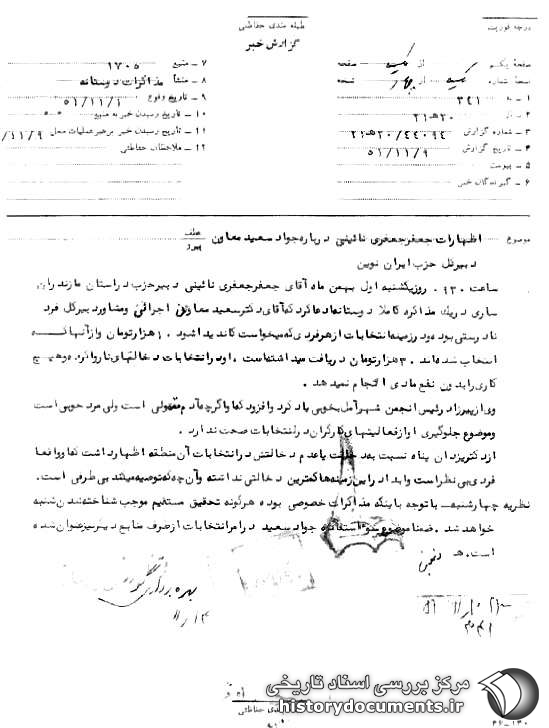 درجه فوریت
طبقه بندی حفاظتی
گزارش خبر
صفحه یکم از یک صفحه
نسخه شماره یک از چهار نسخه
۱ – به ۳۴۱
۲ – از ۲۰هـ۲۱
۳ – شماره گزارش ۲۱هـ۲۰/۴۴۰۹۴
۴ – تاریخ گزارش ۵۱/۱۱/۹
۵ – پیوست
۶ – گیرندگان خبر
۷ – منبع ۱۷۰۵
۸ – منشأ مذاکرات دوستانه
۹ – تاریخ وقوع ۵۱/۱۱/۱
۱۰ – تاریخ رسیدن خبر به منبع
۱۱ – تاریخ رسیدن خبر برهبر عملیات محل /۱۱/۹
۱۲ – ملاحظات حفاظتی
موضوع اظهارات جعفر جعفری نائینی درباره جواد سعید معاون
عطف
پیرو
دبیرکل حزب ایران نوین
ساعت ۹۳۰ روز یکشنبه اول بهمن ماه آقای جعفر جعفری نائینی دبیر حزب در استان مازندران
ساری در یک مذاکره کاملا دوستانه ادعا کرد که آقای دکتر سعید معاون اجرائی و مشاور دبیرکل فرد
نادرستی بوده و در زمینه انتخابات از هر فردی که میخواست کاندید شود ۱۰ هزار تومان و از آنها که
انتخاب شده‌اند ۳۰ هزار تومان دریافت میداشته است، او در انتخابات دخالتهای ناروا کرده و هیچ
کاری را بدون نفع مادی انجام نمیدهد.
وی از پیرزاد رئیس انجمن شهر آمل بخوبی یاد کرد و افزود که او اگرچه آدم معمولی است ولی مرد خوبی است
و موضوع جلوگیری او از فعالیتهای کارگران در انتخابات صحت ندارد.
از دکتر یزدان پناه نسبت به دخالت یا عدم دخالتش در انتخابات آن منطقه اظهار داشت که او واقعا
فردی بی نظر است و ابدا در این زمینه‌ها کمترین دخالتی نداشته و آنچه که توصیه میشد بی طرفی است.
نظریه چهارشنبه – با توجه باینکه مذاکرات خصوصی بوده هرگونه تحقیق مستقیم موجب شناخته شدن شنبه
خواهد شد. ضمنا موضوع سوء استفاده جواد سعید در امر انتخابات از طرف منابع دیگر نیز عنوان شده
است. هـ
بهره برداری
۱۱/۱۴
مرکز بررسی اسناد تاریخی
historydocuments.ir
۳۶–۱۳۰